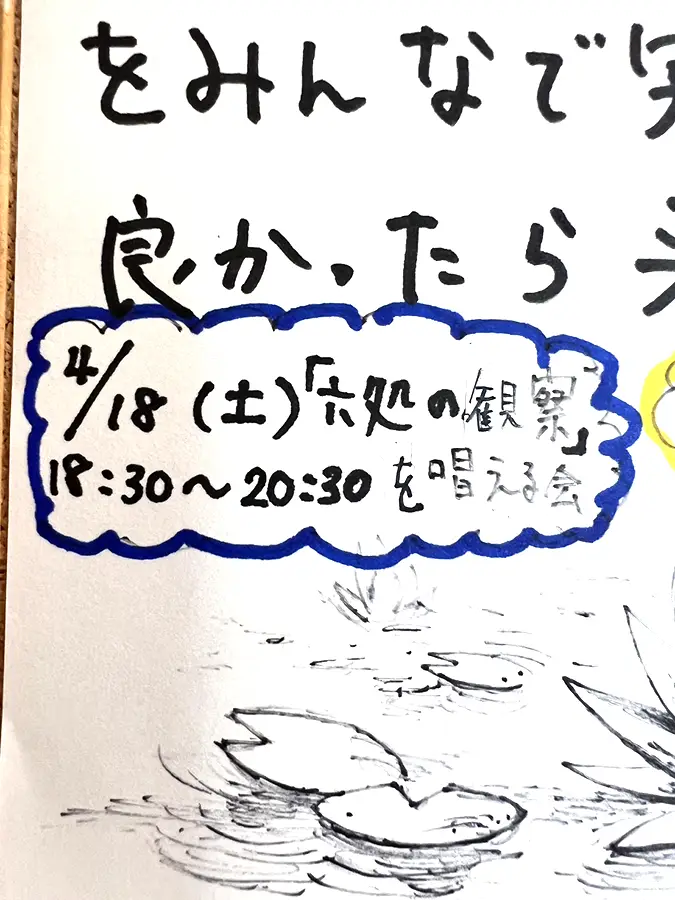 をみんなで
良かったら
4/18（土）「六処の観察」
18:30〜20:30 を唱える会